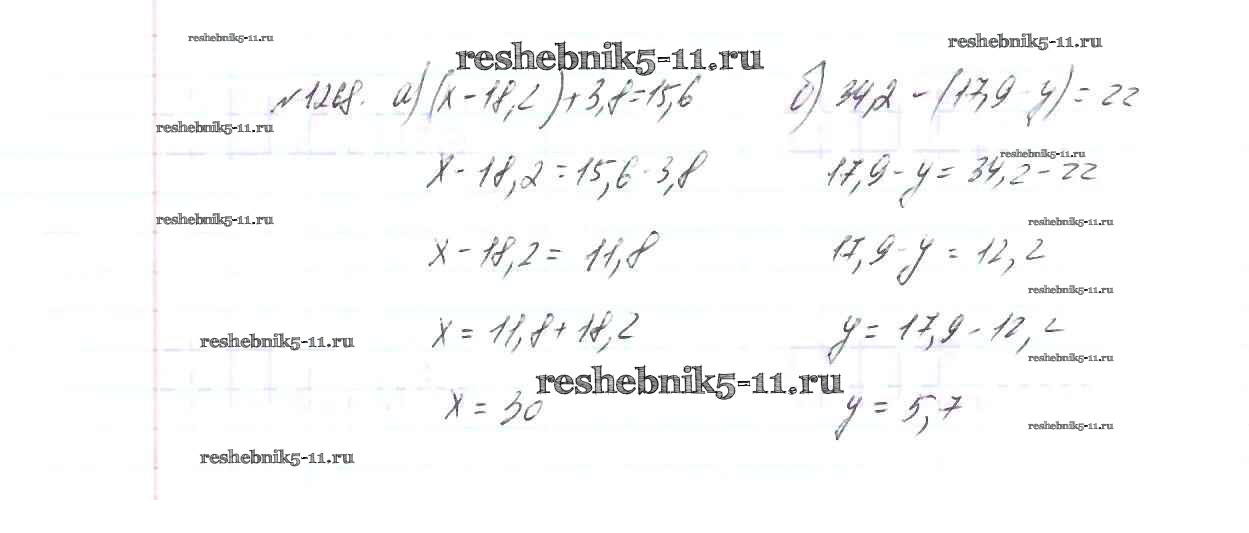 reshebnik5-11.ru
reshebnik5-11.ru
reshebnik5-11.ru
№1268. а) (x - 18,2) + 3,8 = 15,6
б) 34,2 - (17,9 - y) = 22
reshebnik5-11.ru
reshebnik5-11.ru
x - 18,2 = 15,6 - 3,8
17,9 - y = 34,2 - 22
reshebnik5-11.ru
reshebnik5-11.ru
x - 18,2 = 11,8
17,9 - y = 12,2
reshebnik5-11.ru
x = 11,8 + 18,2
y = 17,9 - 12,2
reshebnik5-11.ru
reshebnik5-11.ru
reshebnik5-11.ru
x = 30
y = 5,7
reshebnik5-11.ru
reshebnik5-11.ru